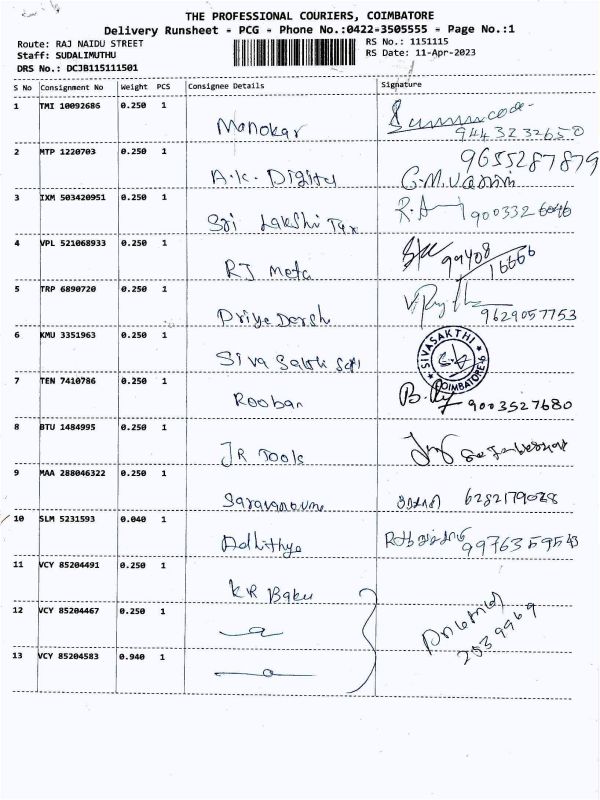 THE PROFESSIONAL COURIERS, COIMBATORE
Delivery Runsheet - PCG - Phone No.:0422-3505555 - Page No.:1
Route: RAJ NAIDU STREET
RS No.: 1151115
Staff: SUDALIMUTHU
RS Date: 11-Apr-2023
DRS No.: DCJB115111501
S No Consignment No Weight PCS Consignee Details Signature
1 TMI 10092686 0.250 1
Manokar
9443232650
2 MTP 1220703 0.250 1
9655287879
A.K. Digital
G.M.Vasnin
3 IXM 503420951 0.250 1
Sri Lakshi Tax
R.A
4 VPL 521068933 0.250 1
RJ Meta
99408
16666
5 TRP 6890720 0.250 1
Priye Dersh
9629057753
6 KMU 3351963 0.250 1
Siva Sakthi
SIVASAKTHI
COIMBATORE
7 TEN 7410786 0.250 1
Rooban
9003527680
8 BTU 1484995 0.250 1
JR Tools
9 MAA 288046322 0.250 1
Saravanauma
6282179028
10 SLM 5231593 0.040 1
Adhithya
11 VCY 85204491 0.250 1
KR Baku
12 VCY 85204467 0.250 1
13 VCY 85204583 0.940 1